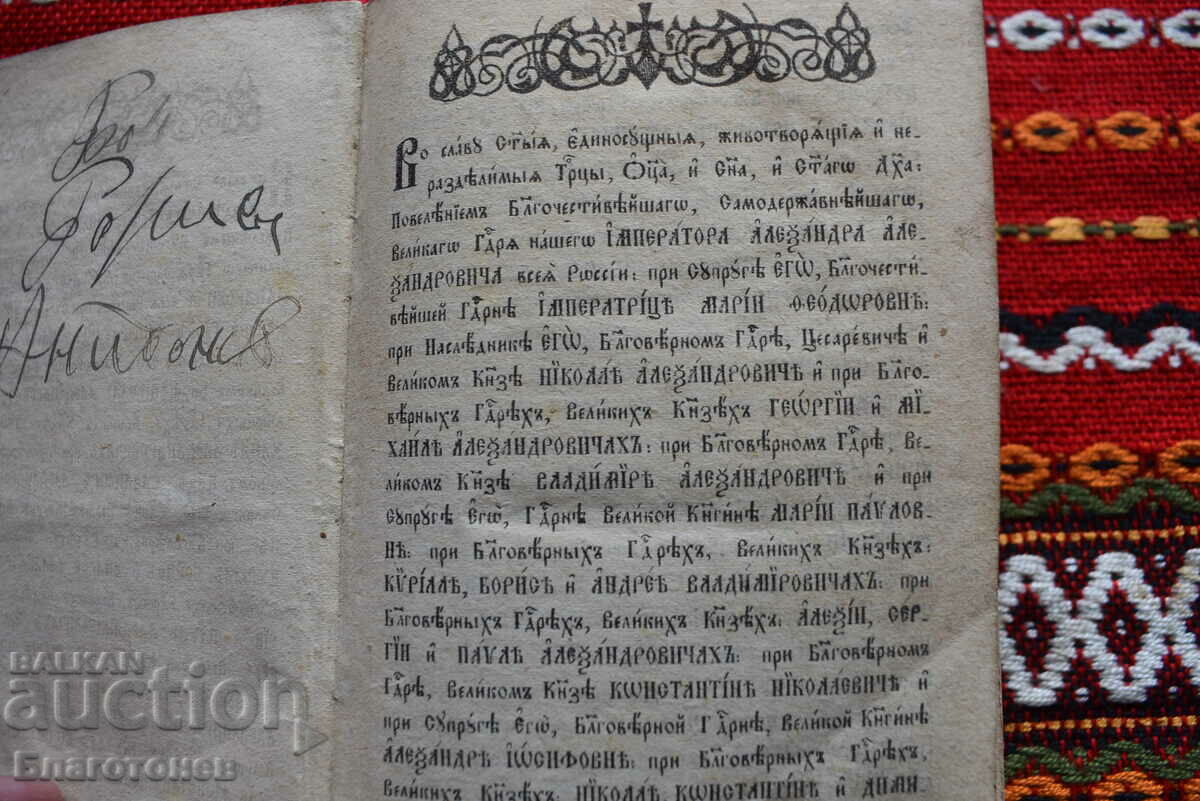 Во славу Ст҃ыѧ, Є҆диносꙋщныѧ, животворѧ́щїѧ и҆ не-
раздѣли́мыѧ Трⷪ҇цы, Ѻ҆ц҃а, и҆ Сн҃а, и҆ Ст҃а́гѡ Дх҃а:
Повелѣ́нїемъ Бл҃гочести́вѣйшагѡ, Самодержа́внѣйшагѡ,
Вели́кагѡ Гдⷭ҇рѧ на́шегѡ І҆МПЕРА́ТОРА А҆ЛЕѮА́НДРА А҆ЛЕ-
ѮА́НДРОВИЧА всеѧ̀ Рѡссі́и: при Сꙋпрꙋ́гѣ Є҆ГѠ̀, Бл҃гочести́-
вѣйшей Гдⷭ҇рнѣ І҆МПЕРАТРИ́ЦѢ МАРІ́И ѲЕО́ДѠРОВНѢ:
при Наслѣ́дникѣ Є҆ГѠ̀, Бл҃говѣ́рномъ Гдⷭ҇рѣ, Цесаре́вичѣ и҆
Вели́комъ Кн҃зѣ НІКОЛА́Ѣ А҆ЛЕѮА́НДРОВИЧѢ и҆ при Бл҃го-
вѣ́рныхъ Гдⷭ҇рѣхъ, Вели́кихъ Кн҃зѣхъ ГЕѠ́РГІИ и҆ МІ-
ХАИ́ЛѢ А҆ЛЕѮА́НДРОВИЧАХЪ: при Бл҃говѣ́рномъ Гдⷭ҇рѣ, Ве-
ли́комъ Кн҃зѣ ВЛАДИ́МІРѢ А҆ЛЕѮА́НДРОВИЧѢ и҆ при
Сꙋпрꙋ́гѣ Є҆гѡ̀, Гдⷭ҇рнѣ Вели́кой Кн҃ги́нѣ МАРІ́И ПА́ѴЛОВ-
НѢ: при Бл҃говѣ́рныхъ Гдⷭ҇рѣхъ, Вели́кихъ Кн҃зѣхъ:
КѴРІ́ЛЛѢ, БОРИ́СѢ и҆ А҆НДРЕ́Ѣ ВЛАДИ́МІРОВИЧАХЪ: при
Бл҃говѣ́рныхъ Гдⷭ҇рѣхъ, Вели́кихъ Кн҃зѣхъ: А҆ЛЕѮІ́И, СЕР-
ГІИ и҆ ПА́ѴЛѢ А҆ЛЕѮА́НДРОВИЧАХЪ: при Бл҃говѣ́рномъ
Гдⷭ҇рѣ, Вели́комъ Кн҃зѣ КѠНСТАНТІ́НѢ НІКОЛА́ЕВИЧѢ и҆
при Сꙋпрꙋ́гѣ Є҆гѡ̀, Бл҃говѣ́рной Гдⷭ҇рнѣ, Вели́кой Кн҃ги́нѣ
А҆ЛЕѮА́НДРѢ І҆Ѡ́СИФОВНѢ: при Бл҃говѣ́рныхъ Гдⷭ҇рѣхъ,
Вели́кихъ Кн҃зѣхъ: НІКОЛА́Ѣ, КѠНСТАНТІ́НѢ и҆ ДИМИ́-
BALKAN
auction
Благотонев